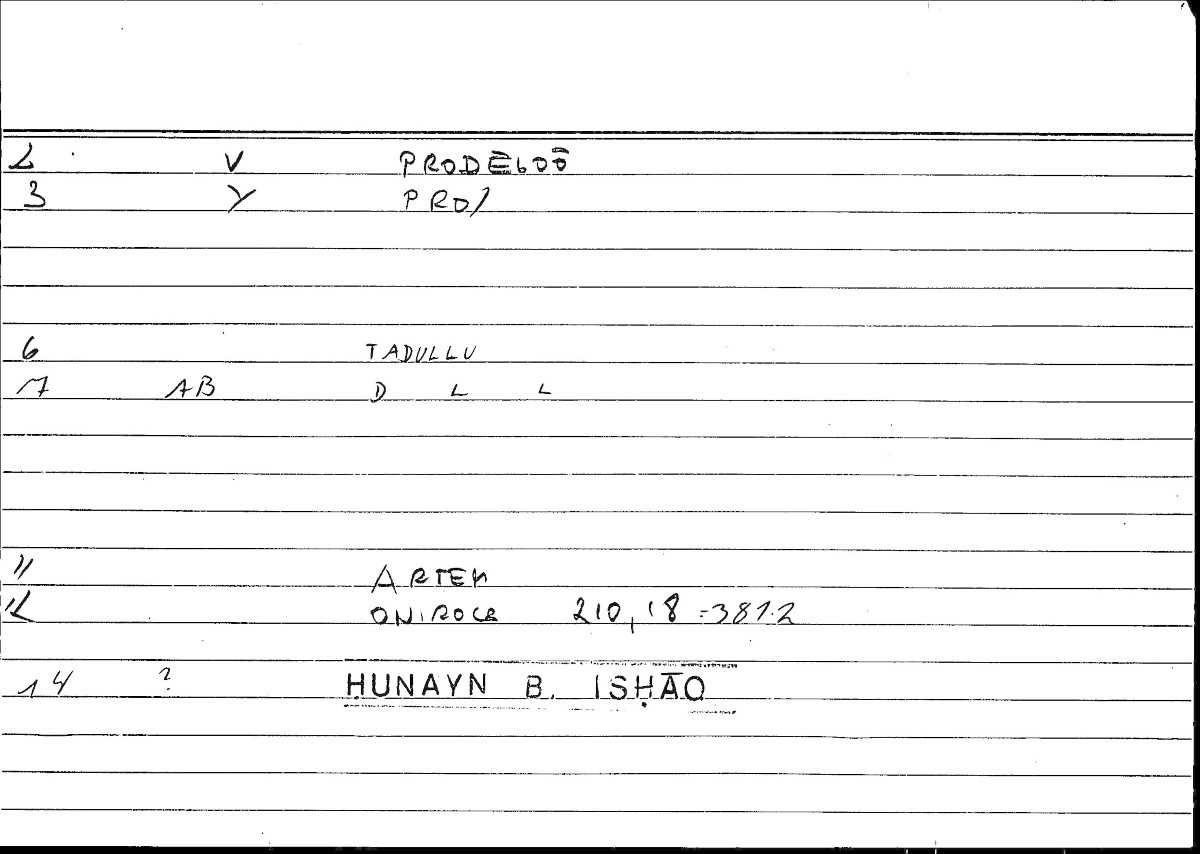 2 V PRODĒLOŌ
3 Y PRO/
6 TADULLU
7 AB D L L
11 ARTEM
12 ONIROCR 210,18 = 381.2
14 ? ḤUNAYN B. ISḤĀQ